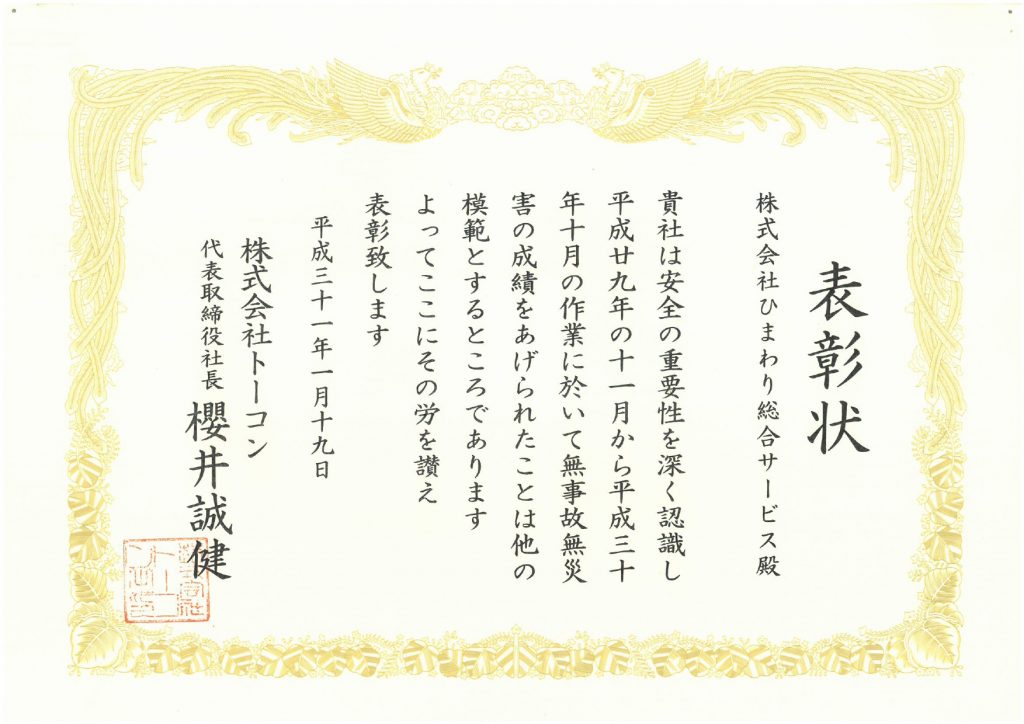 表彰状
株式会社ひまわり総合サービス殿
貴社は安全の重要性を深く認識し
平成廿九年の十一月から平成三十
年十月の作業に於いて無事故無災
害の成績をあげられたことは他の
模範とするところであります
よってここにその労を讃え
表彰致します
平成三十一年一月十九日
株式会社トーコン
代表取締役社長 櫻井誠健